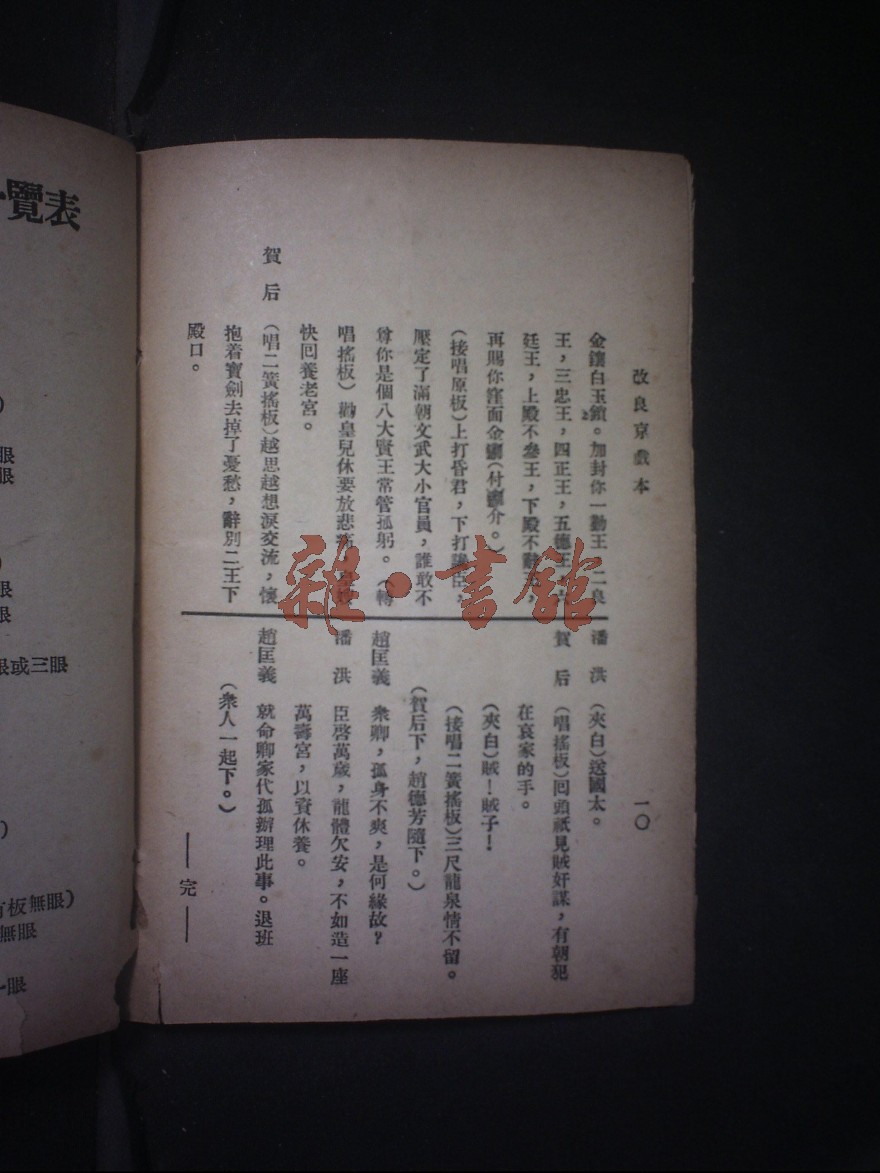 改良京戲本
一〇
金鑲白玉鎖。加封你一勤王，二良
王，三忠王，四正王，五德王，六
廷王，上殿不叄王，下殿不辭
再賜你窪面金鐧（付鐧介。）
（接唱原板）上打昏君，下打讒臣，
壓定了滿朝文武大小官員，誰敢不
尊你是個八大賢王常管孤躬。（轉
唱搖板）勸皇兒休要放悲
快回養老宮。
賀　后　（唱二簧搖板）越思越想淚交流，懷
抱着寶劍去掉了憂愁，辭別二王下
殿口。
潘　洪　（夾白）送國太。
賀　后　（唱搖板）回頭祇見賊奸謀，有朝犯
在哀家的手。
（夾白）賊！賊子！
（接唱二簧搖板）三尺龍泉情不留。
（賀后下，趙德芳隨下。）
趙匡義　衆卿，孤身不爽，是何緣故？
潘　洪　臣啓萬歲，龍體欠安，不如造一座
萬壽宮，以資休養。
趙匡義　就命卿家代孤辦理此事。退班
（衆人一起下。）
——完——
覽表
眼
眼
眼
眼
眼或三眼
板無眼）
無眼
眼
雜·書館